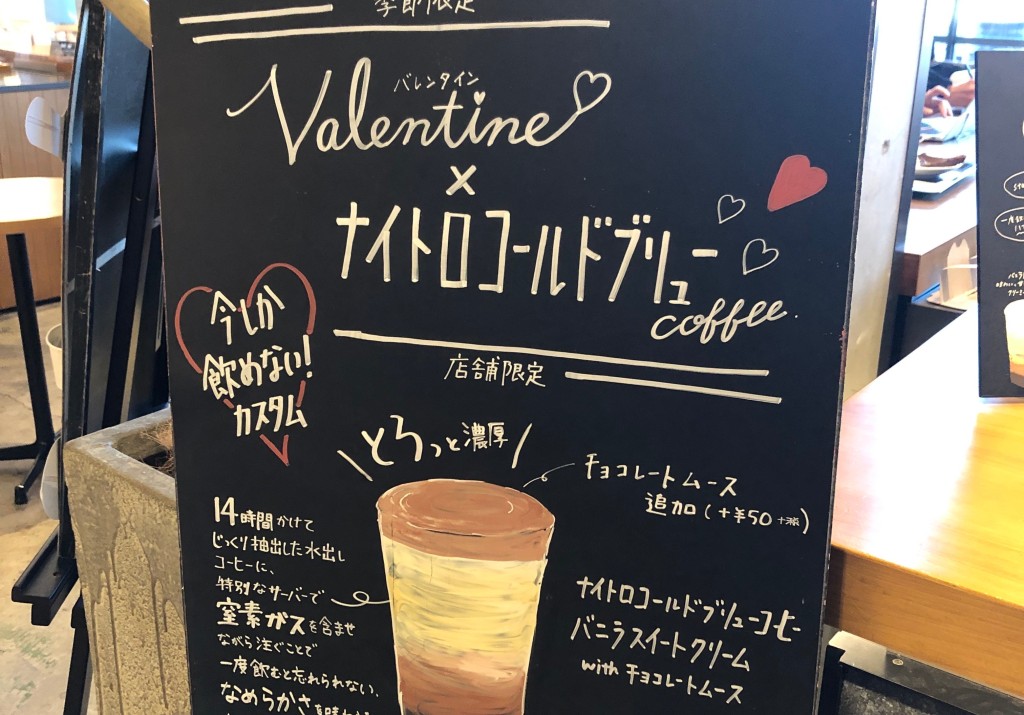 季節限定
バレンタイン
Valentine
×
ナイトロコールドブリュー
coffee.
店舗限定
今しか
飲めない!
カスタム
とろっと濃厚
チョコレートムース
追加(+¥50+税)
14時間かけて
じっくり抽出した水出し
コーヒーに、
特別なサーバーで
窒素ガスを含ませ
ながら注ぐことで
一度飲むと忘れられない、
なめらかさを
ナイトロコールドブリューコーヒー
バニラスイートクリーム
with チョコレートムース